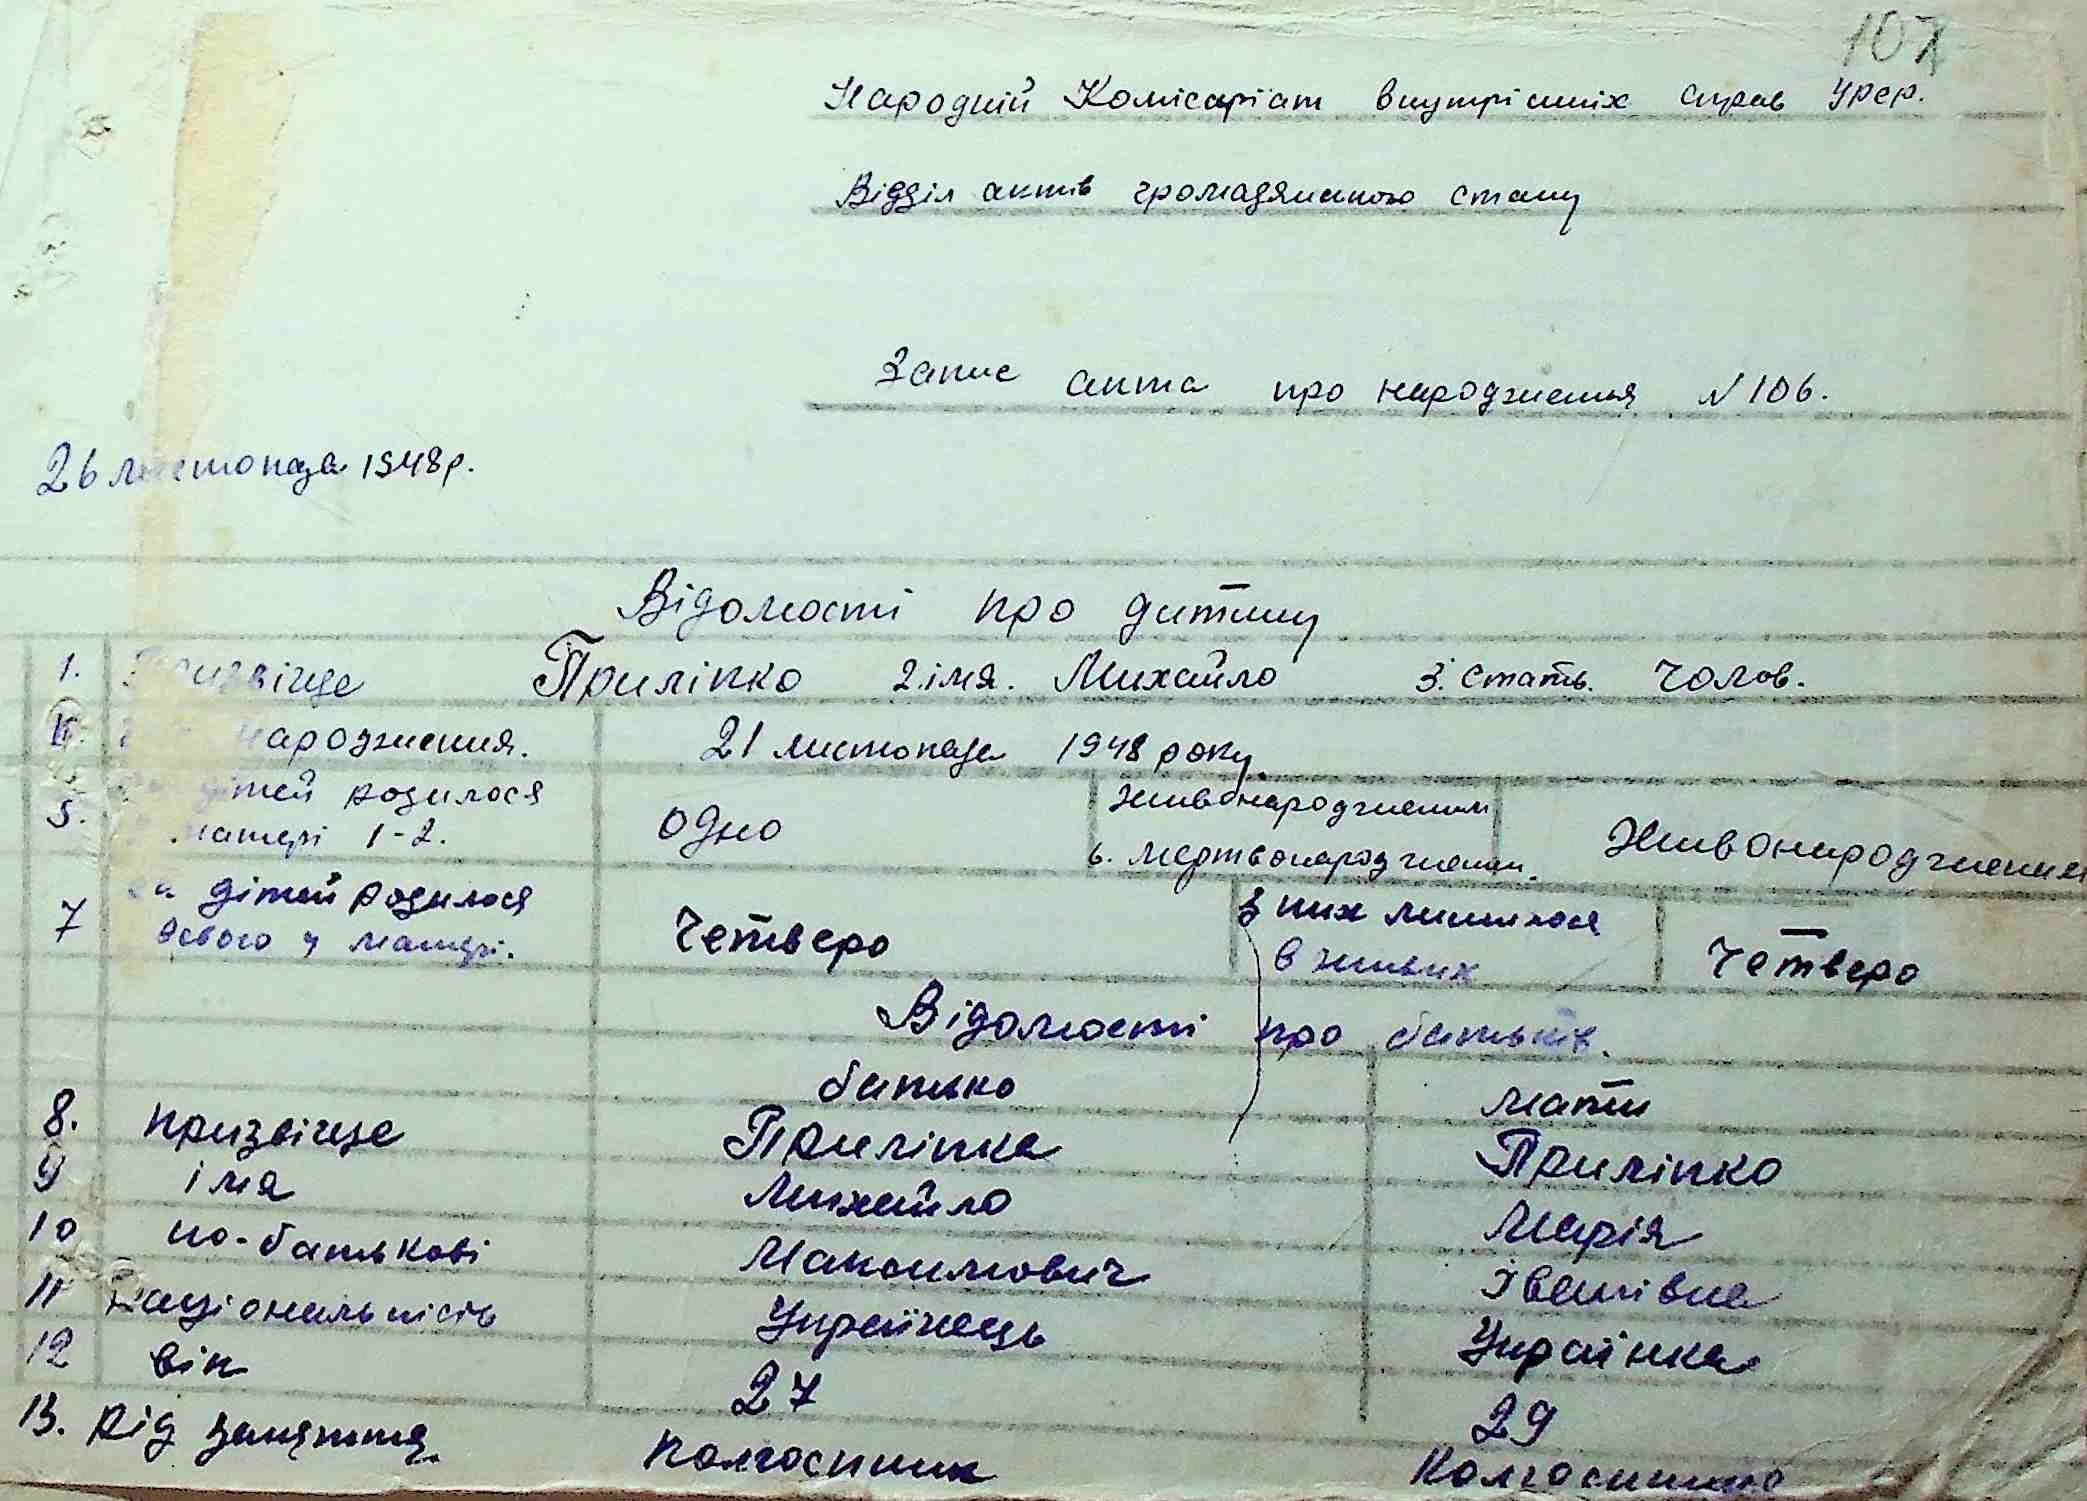 107
Народній Комісаріат внутрішніх справ УРСР.
Відділ актів громадянського стану
Запис акта про народження N 106.
26 листопада 1948 р.
Відомості про дитину
1. Призвіще Приліпко 2. імя. Михайло 3. стать. Чолов.
4. народження. 21 листопада 1948 року.
5. дітей родилося у матері 1-2. одно живонародженим 6. мертвонароджений. Живонароджений
7 дітей родилося всього у матері. Четверо з них лишилося в живих Четверо
Відомості про батьків.
батько мати
8. призвіще Приліпко Приліпко
9 імя Михайло Марія
10 по-батькові Максимович Іванівна
11 Національність Українець Українка
12 вік 27 29
13. Рід заняття. Колгоспник Колгоспниця